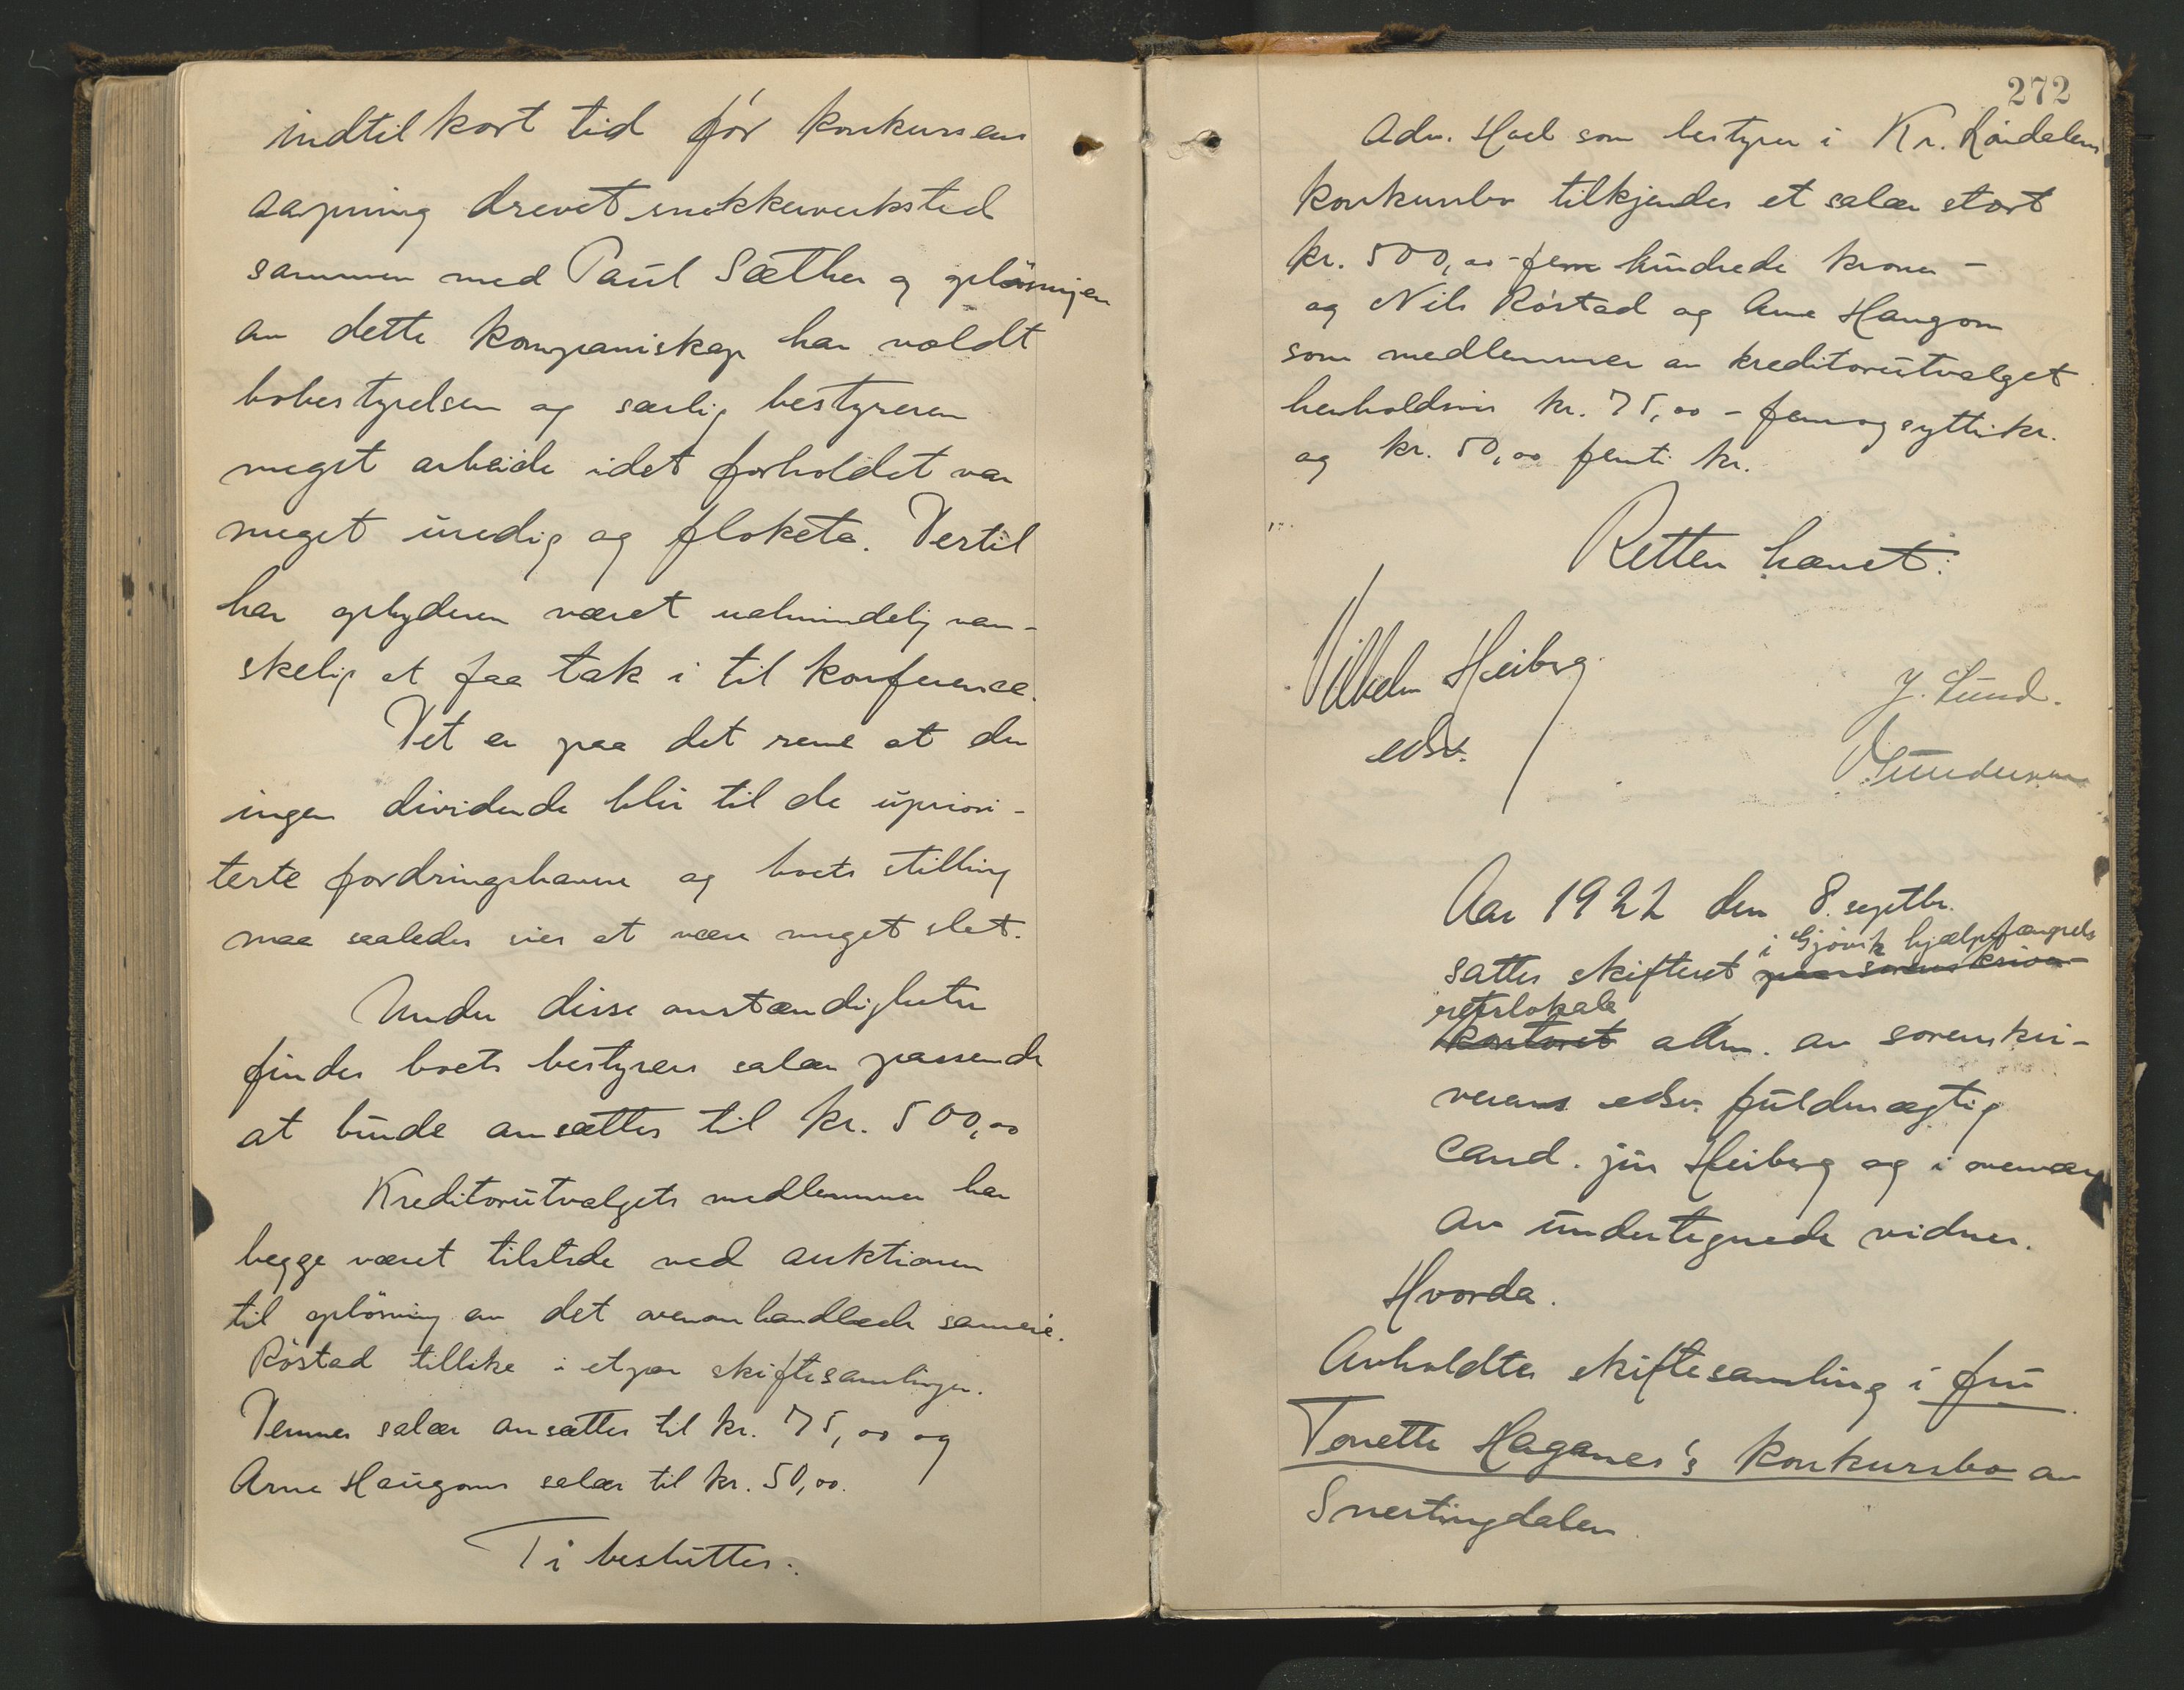 indtil kort tid før konkursens
aapning drevet snekkerverksted
sammen med Paul Sæther og opløsningen
av dette kompaniskap har voldt
bobestyrelsen og særlig bestyreren
meget arbeide idet forholdet var
meget uredig og flokete. Dertil
har opbyderen været ualmindelig van-
skelig at faa tak i til konference.
Det er paa det rene at der
ingen dividende blir til de upriori-
terte fordringshavere og boets stilling
maa saaledes sies at være meget slet.
Under disse omstændigheter
findes boets bestyrers salær passende
at burde ansættes til kr. 500,00
Kreditorutvalgets medlemmer har
begge været tilstede ved auktionen
til opløsning av det ovenomhandlede sameie.
Røstad tillike i et par skiftesamlinger.
Dennes salær ansættes til kr. 75,00 og
Arne Haugoms salær til kr. 50,00.
Ti besluttes:
272
Adv. Hoel som bestyrer i Kr. Røndalens
konkursbo tilkjendes et salær stort
kr. 500,00 - fem hundrede kroner -
og Nils Røstad og Arne Haugom
som medlemmer av kreditorutvalget
henholdsvis kr. 75,00 - femogsytti kr.
og kr. 50,00 femti kr.
Retten hævet:
Vilhelm Heiberg
edsv.
J. Lund.
Aar 1922 den 8. septbr.
i Gjøvik hjælpefængsels
sattes skifteret paa sorenskriver-
retslokale
kontoret adm. av sorenskri-
verens edsv. fuldmægtig
cand. jur Heiberg og i overvær
av undertegnede vidner.
Hvorda.
Avholdtes skiftesamling i fru
Tonette Haganes's konkursbo av
Snertingdalen